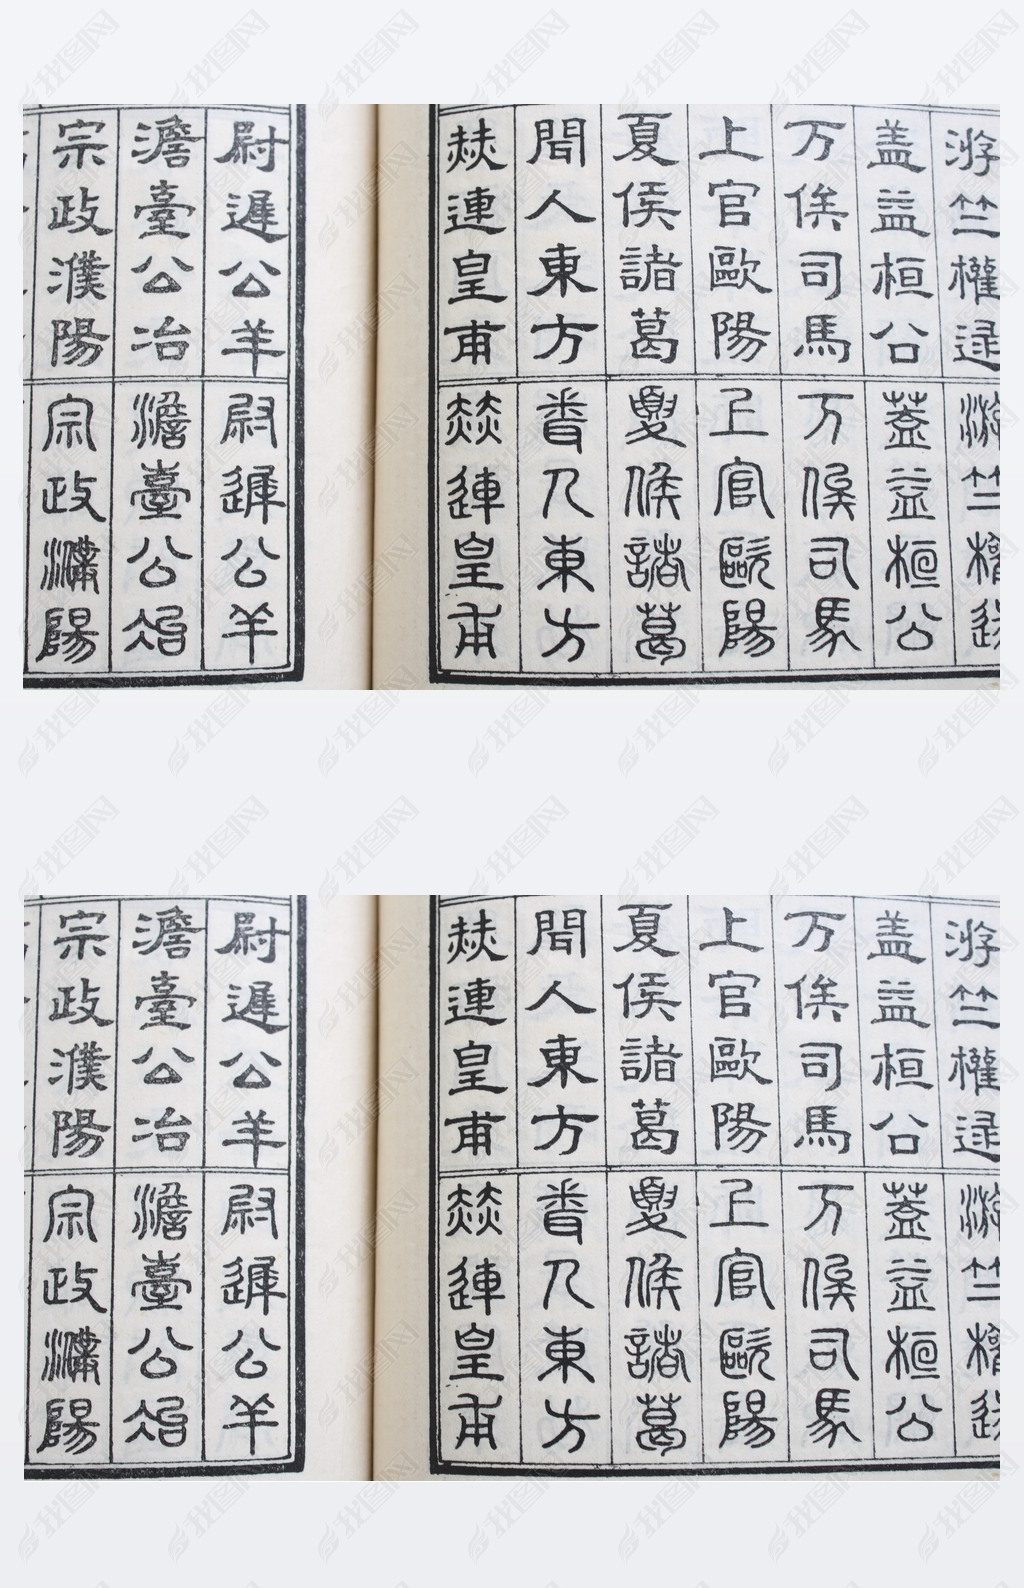 游竺權逯
盖益桓公
万俟司馬
上官歐陽
夏侯諸葛
聞人東方
赫連皇甫
尉遲公羊
澹臺公冶
宗政濮陽
游竺權逯
蓋益桓公
万俟司馬
上官歐陽
夏侯諸葛
聞人東方
赫連皇甫
尉遲公羊
澹臺公冶
宗政濮陽
游竺權逯
盖益桓公
万俟司馬
上官歐陽
夏侯諸葛
聞人東方
赫連皇甫
尉遲公羊
澹臺公冶
宗政濮陽
游竺權逯
蓋益桓公
万俟司馬
上官歐陽
夏侯諸葛
聞人東方
赫連皇甫
尉遲公羊
澹臺公冶
宗政濮陽
我图网